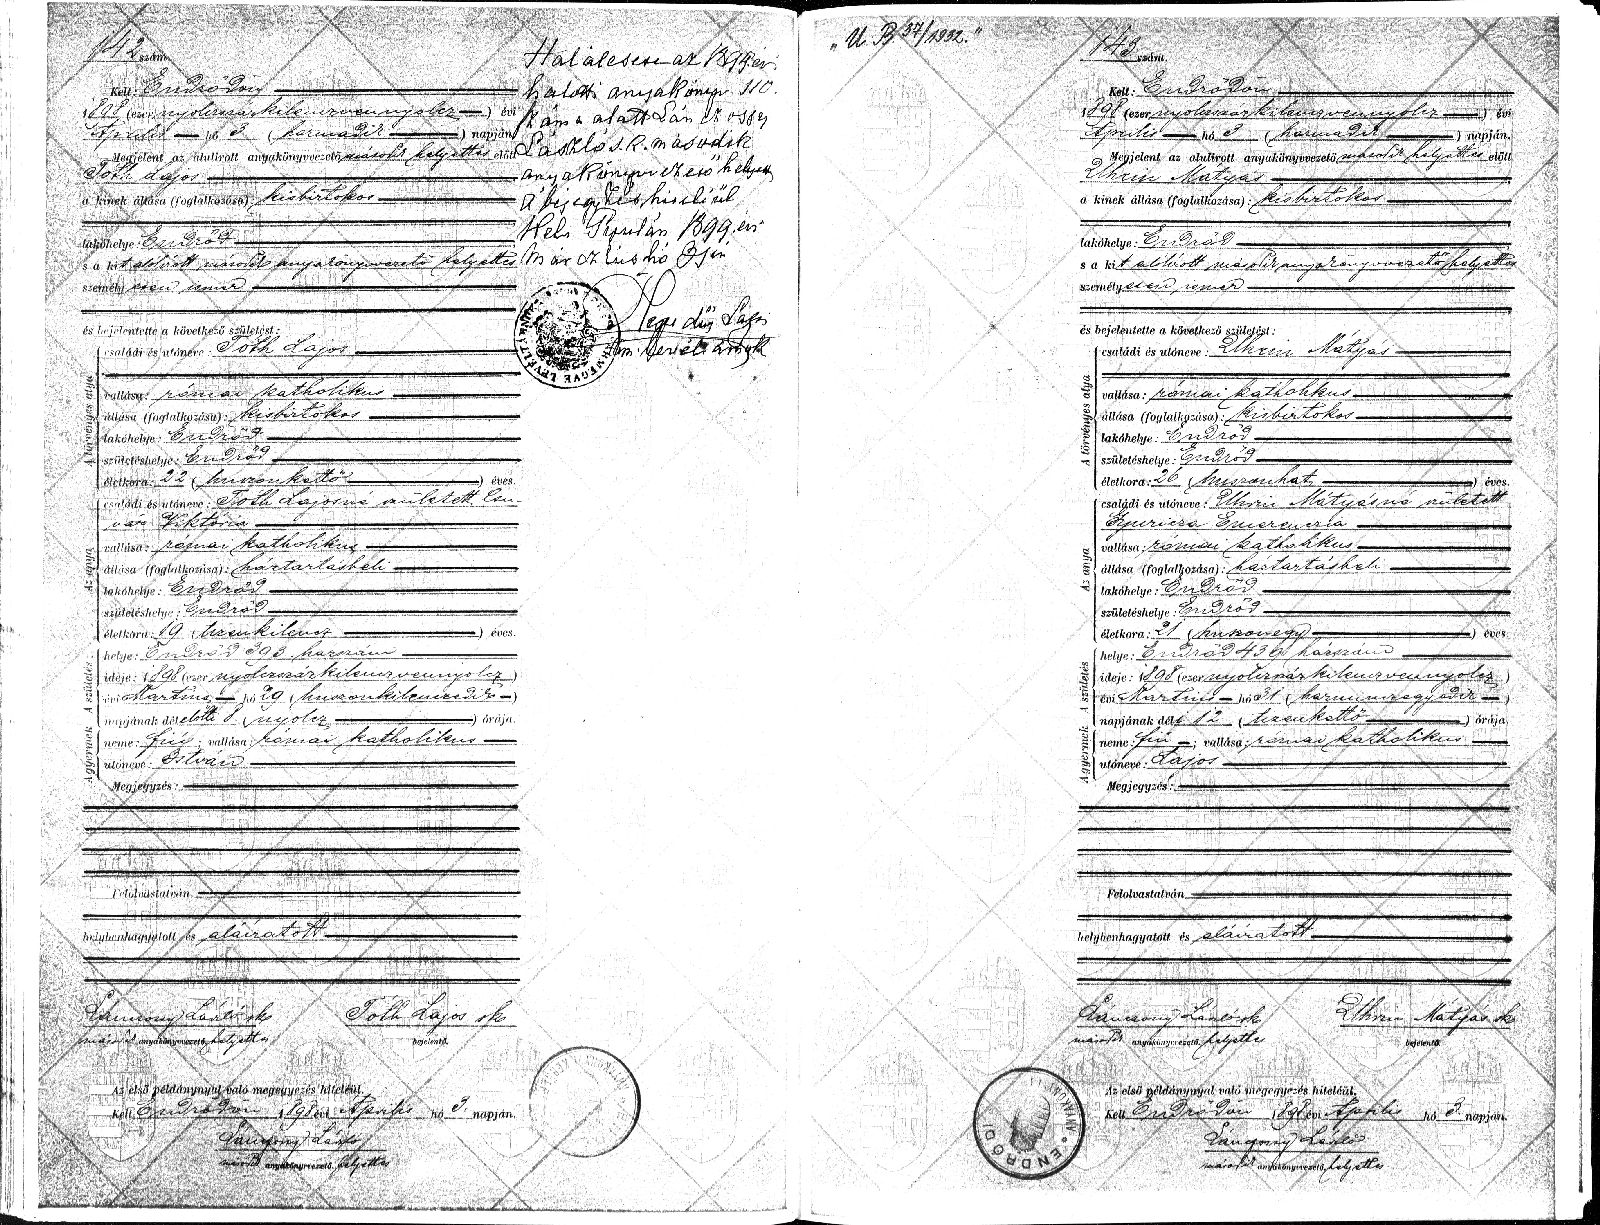 142 szám.
Kelt: Endrődön
1898 (ezer nyolczszázkilenczvennyolcz) évi
Április hó 3 (harmadik) napján.
Megjelent az alulirott anyakönyvvezető második helyettes előtt
Tóth Lajos
a kinek állása (foglalkozása): kisbirtokos
lakóhelye: Endrőd
s a kit alólirott második anyakönyvvezető helyettes
személyesen ismer
és bejelentette a következő születést:
A törvényes atya
családi és utóneve: Tóth Lajos
vallása: római katholikus
állása (foglalkozása): kisbirtokos
lakóhelye: Endrőd
születéshelye: Endrőd
életkora: 22 (huszonkettő) éves.
Az anya
családi és utóneve: Tóth Lajosné született
Viktória
vallása: római katholikus
állása (foglalkozása): háztartásbeli
lakóhelye: Endrőd
születéshelye: Endrőd
életkora: 19 (tizenkilencz) éves.
A születés
helye: Endrőd 393 házszám
ideje: 1898 (ezer nyolczszázkilenczvennyolcz)
évi Martius hó 29 (huszonkilenczedik)
napjának délelőtti 8 (nyolcz) órája.
A gyermek
neme: fiú; vallása: római katholikus
utóneve: István
Megjegyzés:
Felolvastatván,
helybenhagyatott és aláiratott
Lánczony László sk
második anyakönyvvezető, helyettes
Tóth Lajos sk
bejelentő.
Az első példánynyal való megegyezés hiteléül.
Kelt Endrődön 1898 évi Április hó 3 napján.
Lánczony László
második anyakönyvvezető, helyettes
Halálesese az 1899 évi
halotti anyakönyv 110.
szám alatt
László s.k. második
anyakönyvvezető helyettes
A bejegyzés hiteléül
1899. évi
márczius hó 3
Hegedüs
"U. B 37/1932."
143 szám.
Kelt: Endrődön
1898 (ezer nyolczszázkilenczvennyolcz) évi
Április hó 3 (harmadik) napján.
Megjelent az alulirott anyakönyvvezető második helyettes előtt
Uhrin Mátyás
a kinek állása (foglalkozása): kisbirtokos
lakóhelye: Endrőd
s a kit alólirott második anyakönyvvezető helyettes
személyesen ismer
és bejelentette a következő születést:
A törvényes atya
családi és utóneve: Uhrin Mátyás
vallása: római katholikus
állása (foglalkozása): kisbirtokos
lakóhelye: Endrőd
születéshelye: Endrőd
életkora: 26 (huszonhat) éves.
Az anya
családi és utóneve: Uhrin Mátyásné született
Gyuricza Emerenczia
vallása: római katholikus
állása (foglalkozása): háztartásbeli
lakóhelye: Endrőd
születéshelye: Endrőd
életkora: 21 (huszonegy) éves.
A születés
helye: Endrőd házszám
ideje: 1898 (ezer nyolczszázkilenczvennyolcz)
évi Martius hó 31 (harminczegyedik)
napjának déli 12 (tizenkettő) órája.
A gyermek
neme: fiú; vallása: római katholikus
utóneve: Lajos
Megjegyzés:
Felolvastatván,
helybenhagyatott és aláiratott
Lánczony László sk
második anyakönyvvezető, helyettes
Uhrin Mátyás sk
bejelentő.
Az első példánynyal való megegyezés hiteléül.
Kelt Endrődön 1898 évi Április hó 3 napján.
Lánczony László
második anyakönyvvezető, helyettes
ENDRŐDI